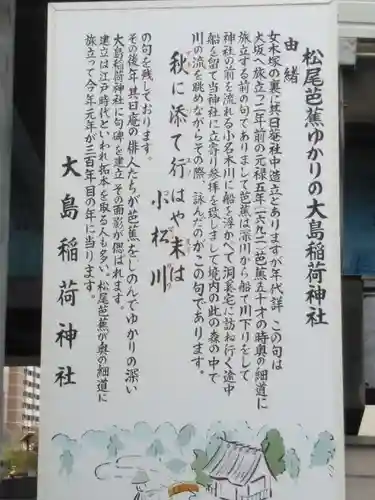 松尾芭蕉ゆかりの大島稲荷神社
由緒
女木塚の裏に其日菴社中造立とありますが年代詳 この句は
大坂へ旅立つ二年前の元禄五年(一六九二)芭蕉五十才の時奥の細道に
旅立する前の句でありまして芭蕉は深川から船で川下りをして
神社の前を流れる小名木川に船を浮かべて洞奚宅に訪ね行く途中
船を留て当神社に立寄り参拝を致しまして境内の此の森の中で
川の流を眺めながらその際、詠んだのがこの句であります。
秋に添て行はや末は
小松川
の句を残しております。
その後年其日庵の俳人たちが芭蕉をしのんでゆかりの深い
大島稲荷神社に句碑を建立 その面影が偲ばれます。
建立は江戸時代といわれ拓本を取る人も多い。松尾芭蕉が奥の細道に
旅立って今年元年が三百年目の年に当ります。
大島稲荷神社